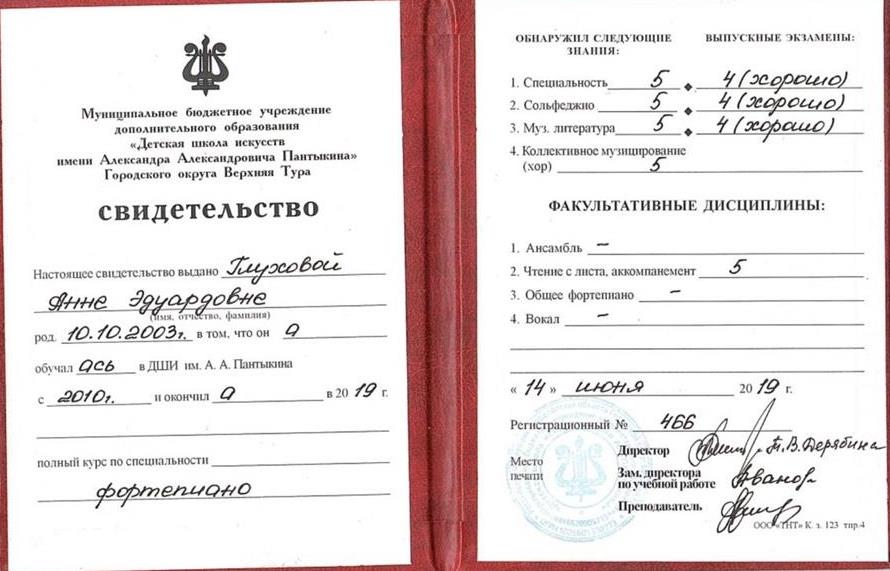 Муниципальное бюджетное учреждение
дополнительного образования
«Детская школа искусств
имени Александра Александровича Пантыкина»
Городского округа Верхняя Тура
СВИДЕТЕЛЬСТВО
Настоящее свидетельство выдано Глуховой
Анне Эдуардовне
(имя, отчество, фамилия)
род. 10.10.2003г. в том, что он а
обучал ась в ДШИ им. А. А. Пантыкина
с 2010г. и окончил а в 2019 г.
полный курс по специальности
фортепиано
ОБНАРУЖИЛ СЛЕДУЮЩИЕ ЗНАНИЯ: ВЫПУСКНЫЕ ЭКЗАМЕНЫ:
1. Специальность 5 4 (хорошо)
2. Сольфеджио 5 4 (хорошо)
3. Муз. литература 5 4 (хорошо)
4. Коллективное музицирование
(хор) 5
ФАКУЛЬТАТИВНЫЕ ДИСЦИПЛИНЫ:
1. Ансамбль –
2. Чтение с листа, аккомпанемент 5
3. Общее фортепиано –
4. Вокал –
« 14 » июня 2019 г.
Регистрационный № 466
Место
печати
Директор Т.В.Дерябина
Зам. директора
по учебной работе Иванова
Преподаватель
ООО «ТНТ» К. з. 123 тир.4